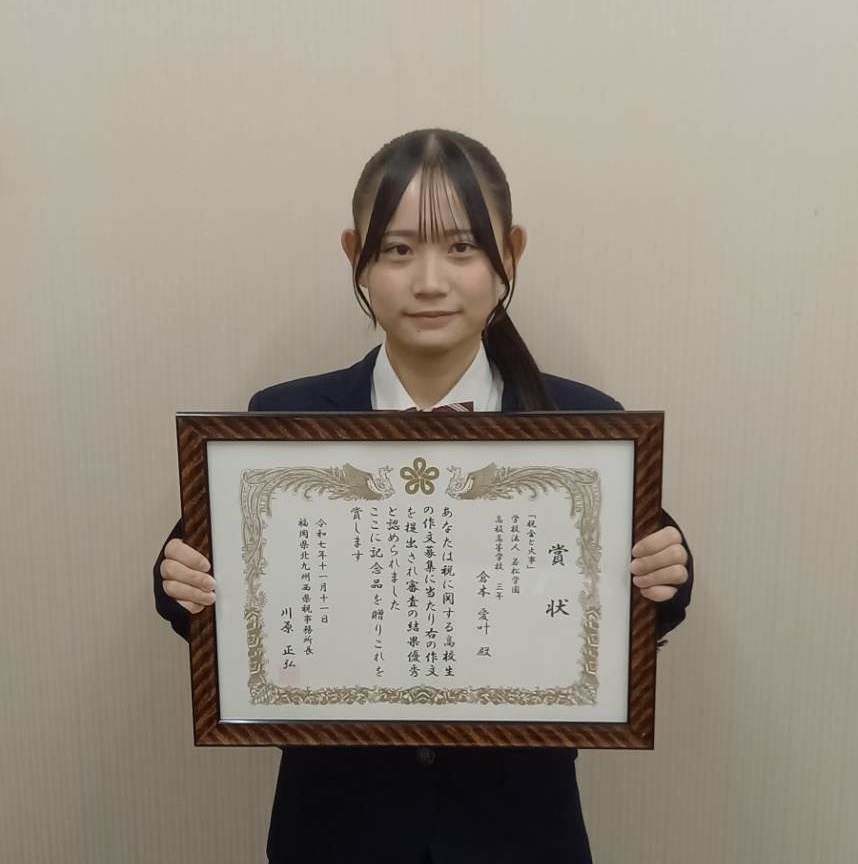 賞状
「税金と火事」
学校法人 若松学園
高校高等学校 三年
倉本 愛叶 殿
あなたは税に関する高校生
の作文募集に当たり右の作文
を提出され審査の結果優秀
と認められました
ここに記念品を贈りこれを
賞します
令和七年十一月十一日
福岡県北九州西県税事務所長
川原 正弘